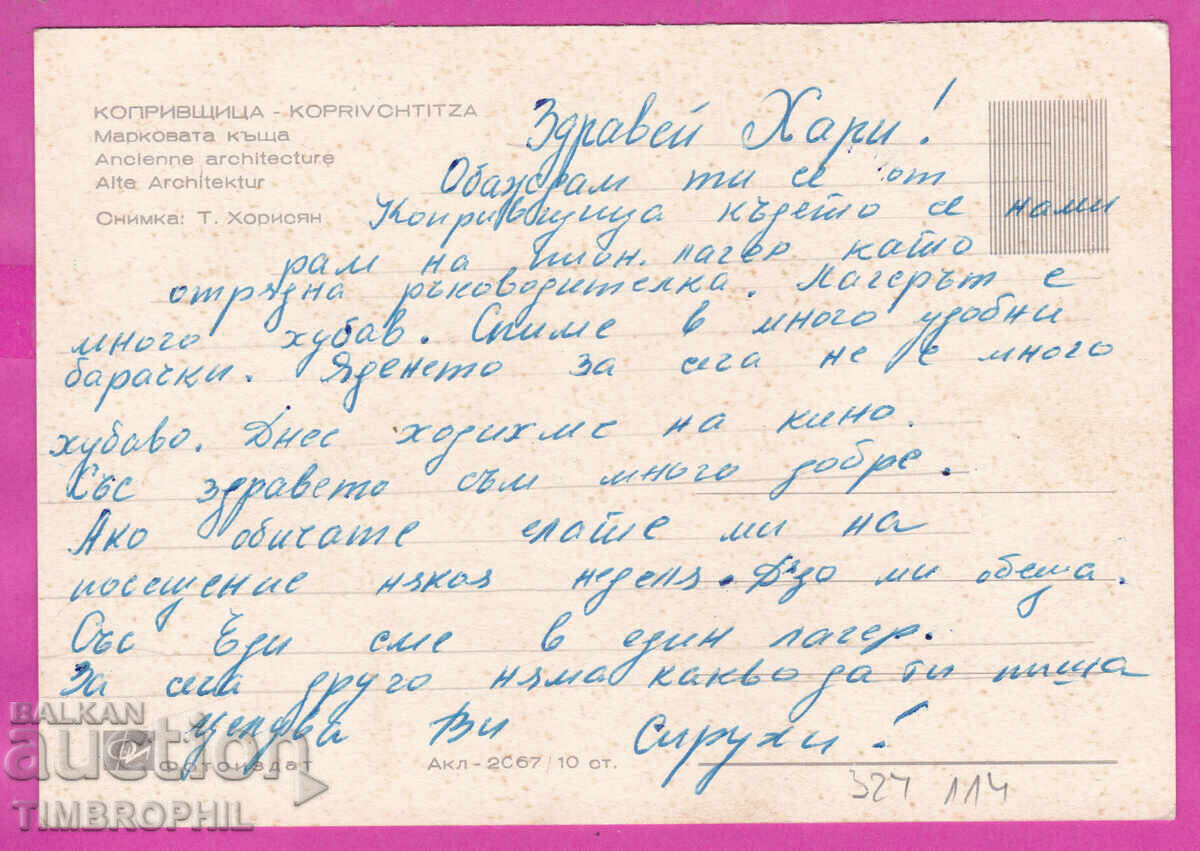 КОПРИВЩИЦА - KOPRIVCHTITZA
Марковата къща
Ancienne architecture
Alte Architektur
Снимка: Т. Хорисян
Здравей Хари!
Обаждам ти се от
Копривщица където се нами
рам на пион. лагер като
отрядна ръководителка. Лагерът е
много хубав. Спиме в много удобни
барачки. Яденето за сега не е много
хубаво. Днес ходихме на кино.
Със здравето съм много добре.
Ако обичате елате ми на
посещение някоя неделя. Дядо ми обеща.
Със Еди сме в един лагер.
За сега друго няма какво да ти пиша
Целува Ви Сирухи!
Фотоиздат
Акл-2067/10 ст.
324 114
BALKAN
auction
TIMBROPHIL